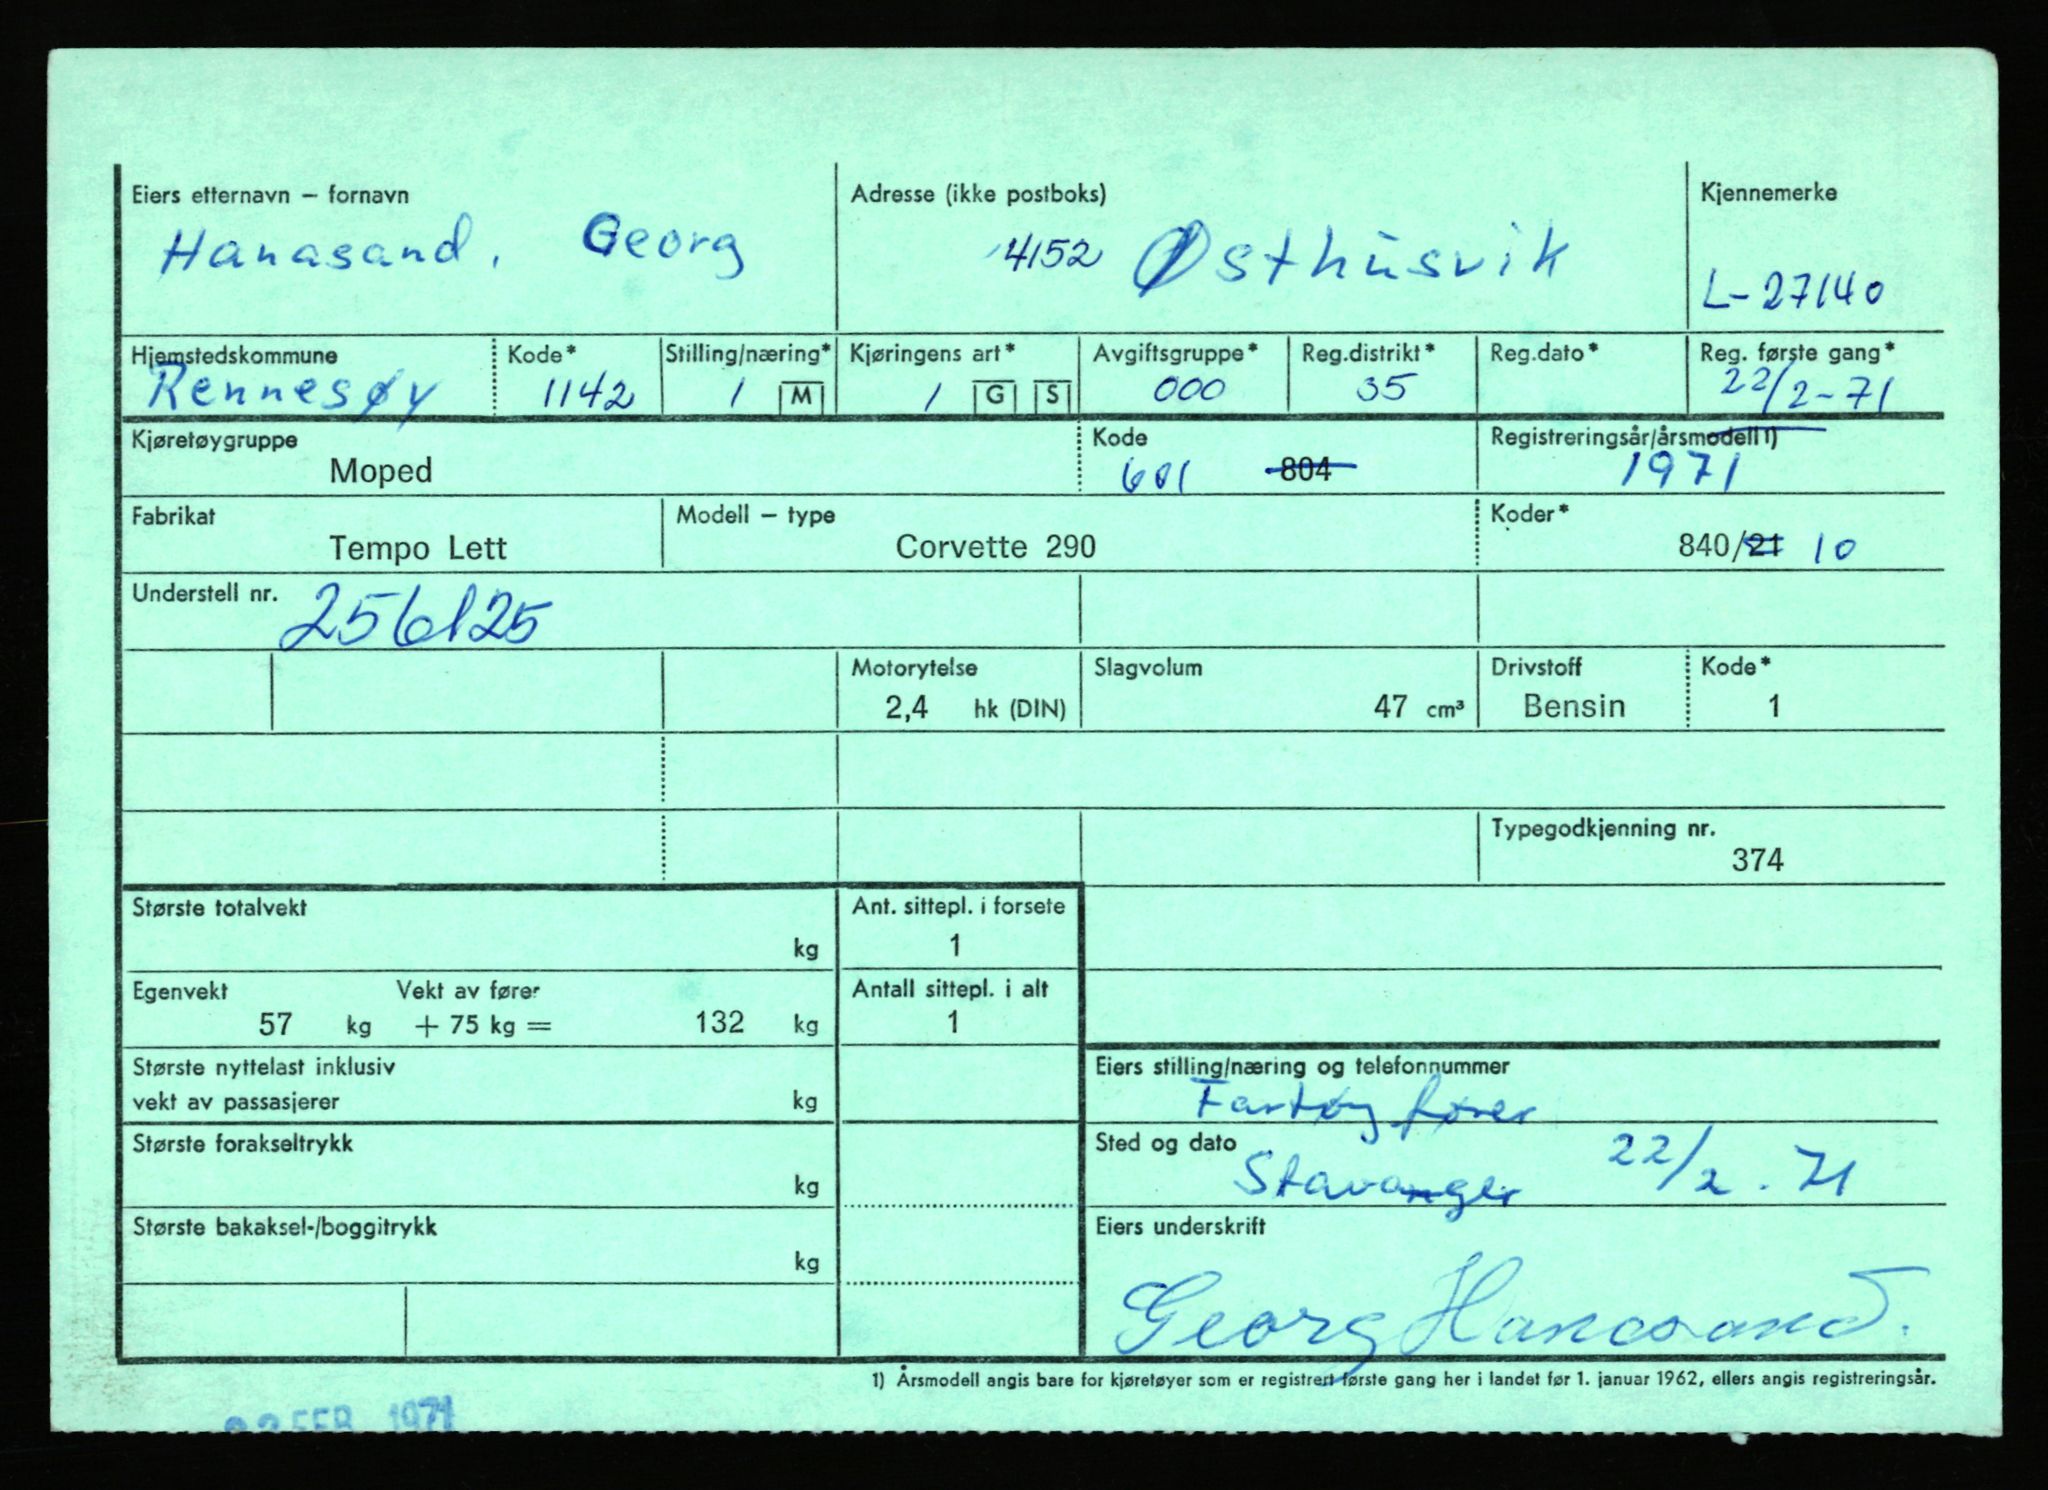 Eiers etternavn – fornavn Adresse (ikke postboks) Kjennemerke
Hanasand, Georg 4152 Østhusvik L-27140
Hjemstedskommune Kode* Stilling/næring* Kjøringens art* Avgiftsgruppe* Reg.distrikt* Reg.dato* Reg. første gang*
Rennesøy 1142 1 M 1 G S 000 35 22/2-71
Kjøretøygruppe Kode Registreringsår/årsmodell 1)
Moped 601 804 1971
Fabrikat Modell – type Koder*
Tempo Lett Corvette 290 840/21 10
Understell nr. 256125
Motorytelse Slagvolum Drivstoff Kode*
2,4 hk (DIN) 47 cm³ Bensin 1
Typegodkjenning nr.
374
Største totalvekt Ant. sittepl. i forsete
kg 1
Egenvekt Vekt av fører Antall sittepl. i alt
57 kg + 75 kg = 132 kg 1
Største nyttelast inklusiv Eiers stilling/næring og telefonnummer
vekt av passasjerer kg Fartøy fører
Største forakseltrykk Sted og dato
kg Stavanger 22/2. 71
Største bakaksel-/boggitrykk Eiers underskrift
kg
Georg Hanasand.
1) Årsmodell angis bare for kjøretøyer som er registrert første gang her i landet før 1. januar 1962, ellers angis registreringsår.
FEB 1971